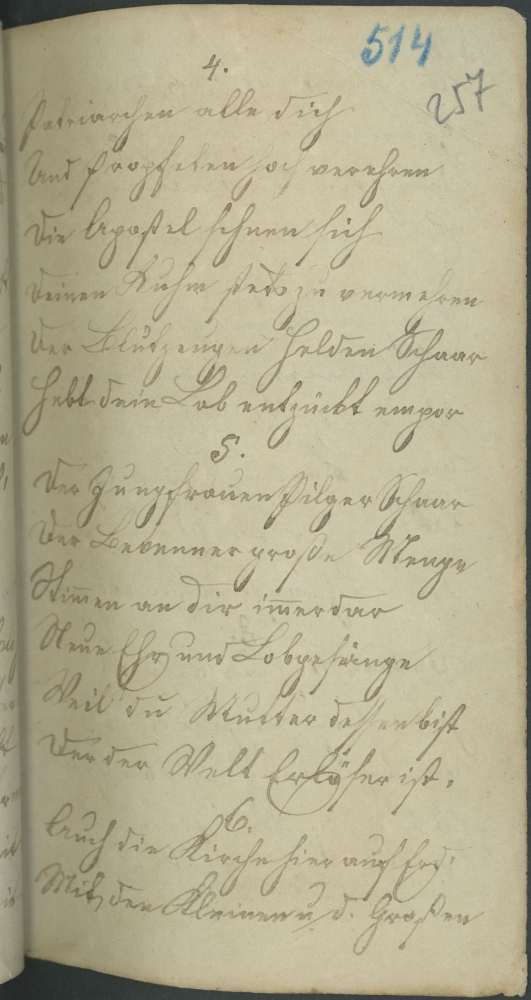 514
257
4.
Patriarchen alle dich
Und Propheten hoch verehren
Die Apostel sehnen sich
Deinen Ruhm stets zu vermehren
Der Blutzeugen Helden Schaar
Hebt dein Lob entzückt empor
5.
Der Jungfrauen Pilger Schaar
Der Bekenner große Menge
Stimen an dir imerdar
Neue Ehr und Lobgesänge
Weil du Mutter dessen bist
Der der Welt Erlöser ist.
6.
Auch die Kirche hier auf Erd
Mit den Kleinen u. d. Großen